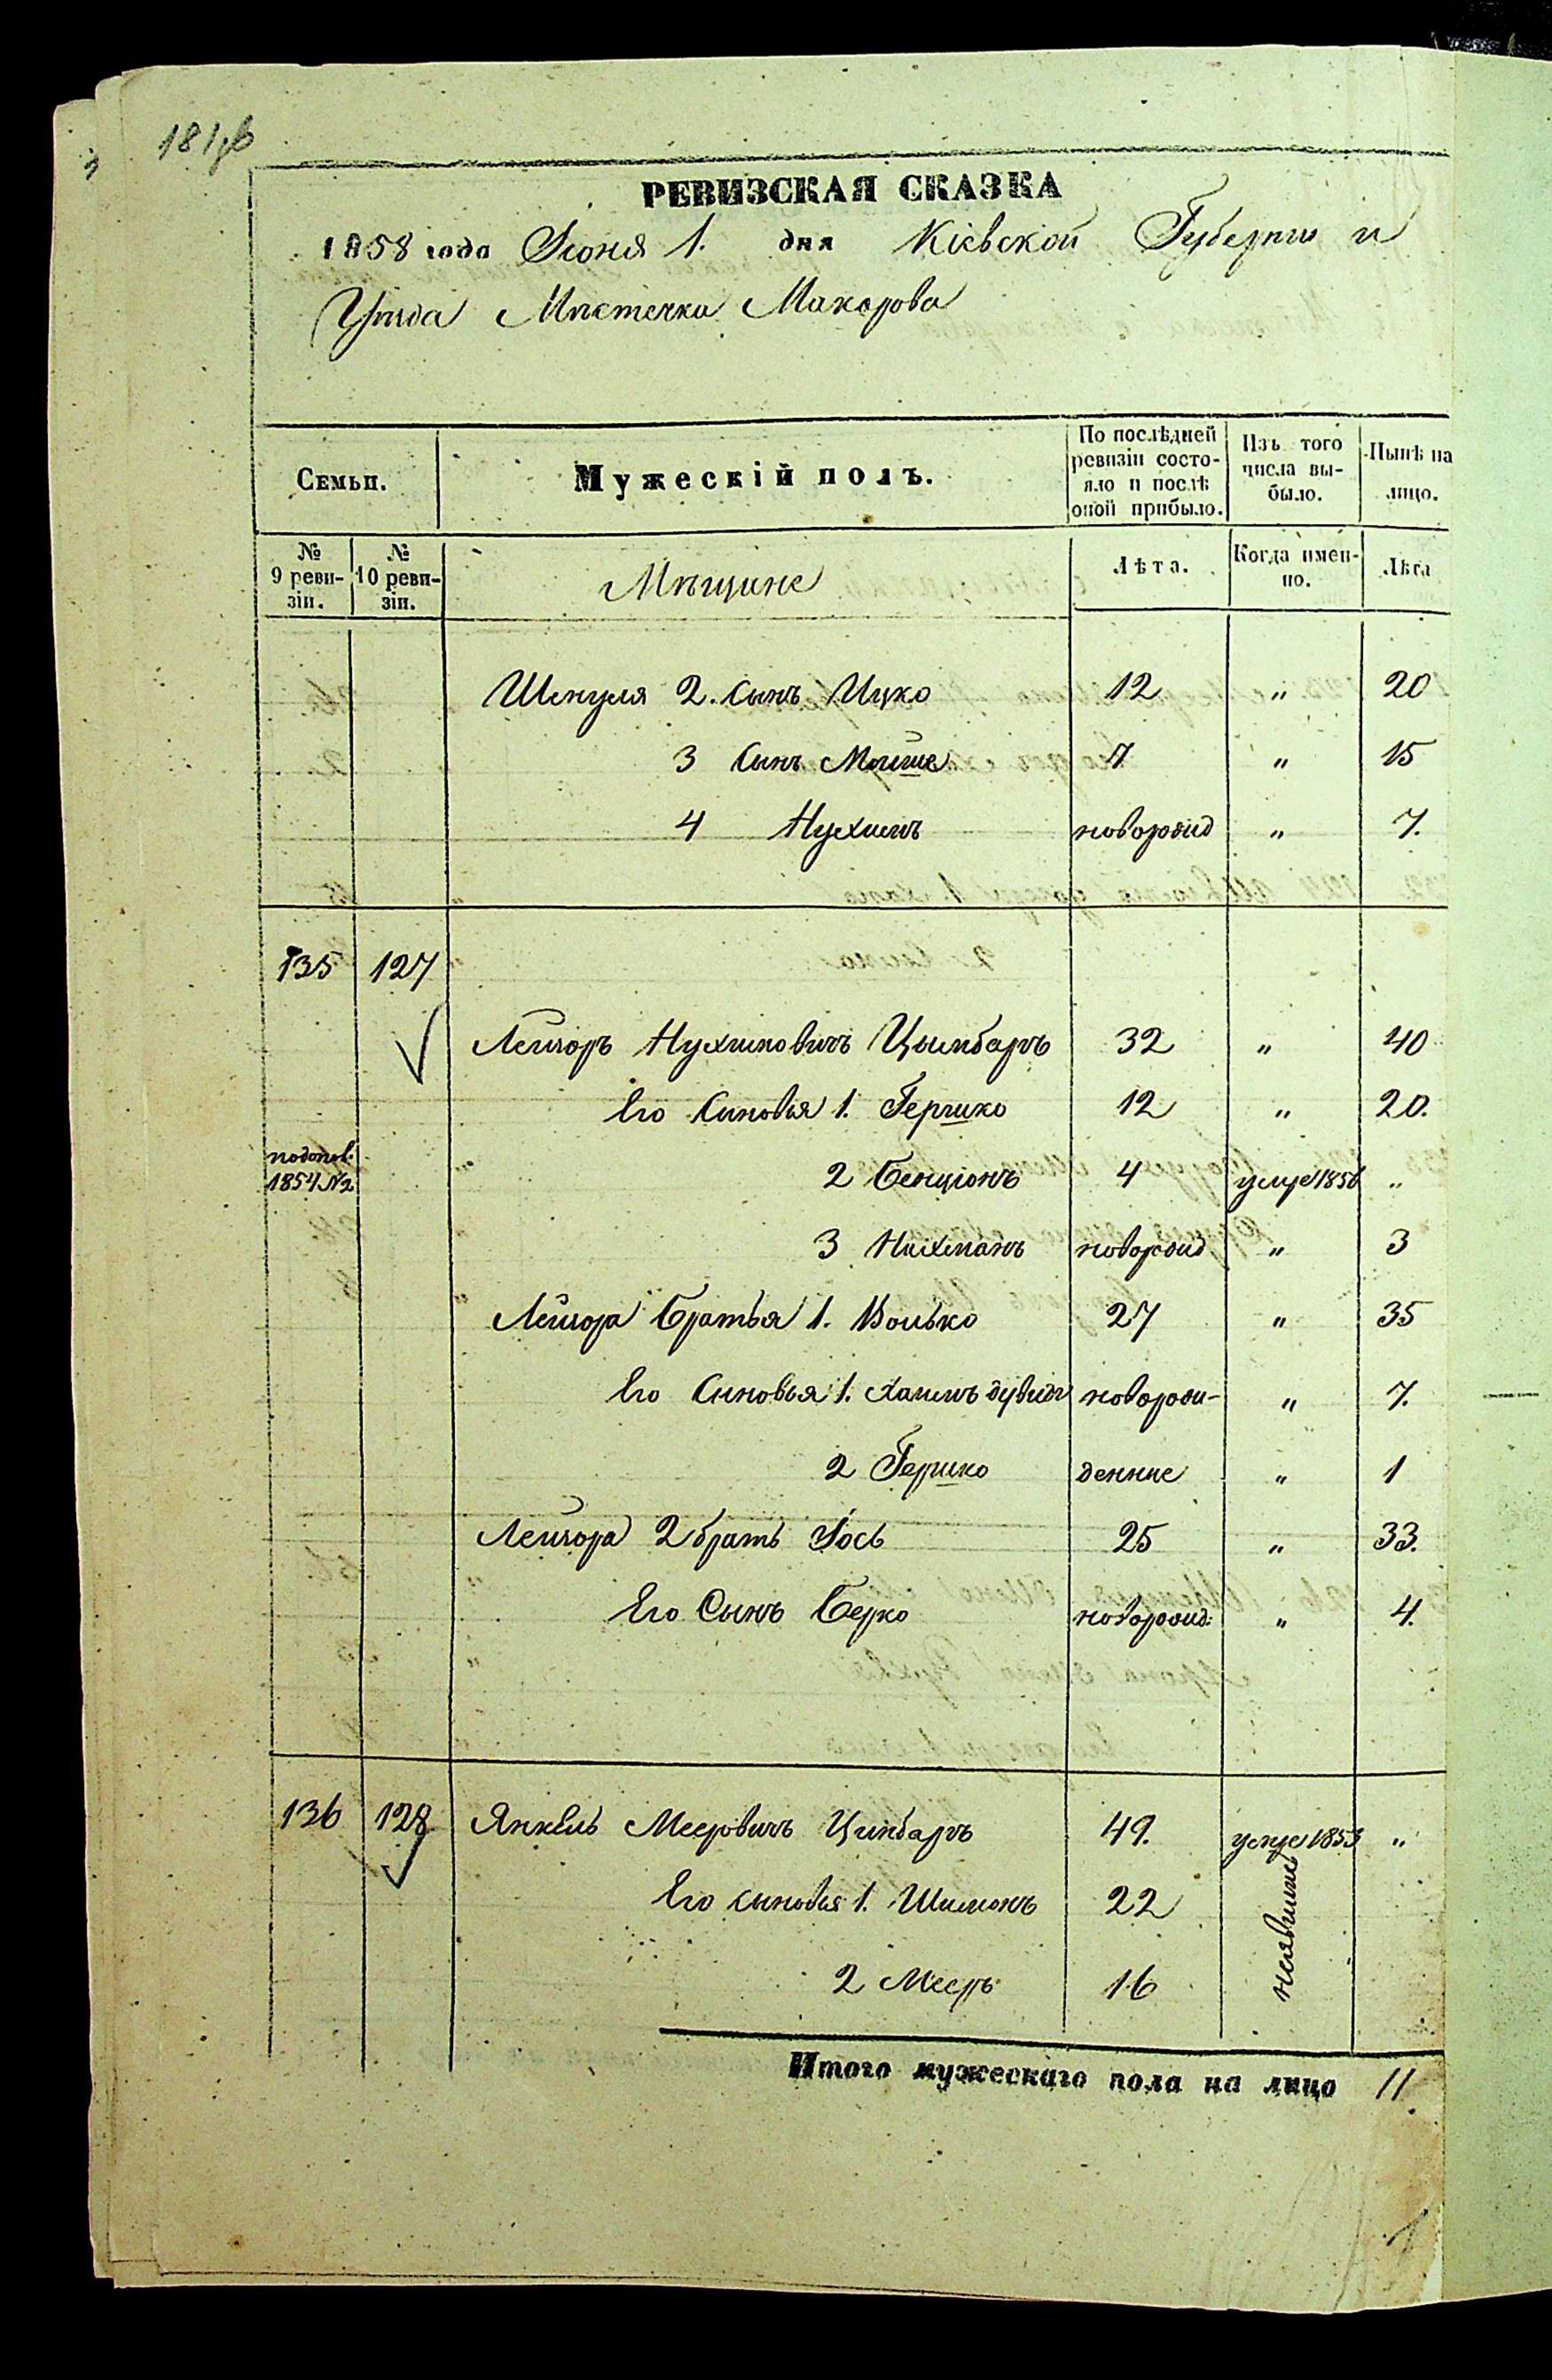 181об
РЕВИЗСКАЯ СКАЗКА
1858 года Іюня 1. дня Кіевской Губерніи и
Уѣзда Мѣстечка Макарова
Семьи. Мужескій полъ. По послѣдней ревизіи состояло и послѣ оной прибыло. Изъ того числа выбыло. Нынѣ на лицо.
№ 9 ревизіи. № 10 ревизіи. Мѣщане Лѣта. Когда именно. Лѣта
2. Сынъ Ицко 12 " 20
3 Сынъ Мошко 7 " 15
4 Нухимъ новорожд " 7.
135 127
Лейзоръ Нухимовичъ Цымбаръ 32 " 40
Его Синовья 1. Гершко 12 " 20.
1854 №2 2 Бенціонъ 4 умре 1856 "
3 Нахманъ новорожд " 3
Лейзора Братья 1. Волько 27 " 35
Его Синовья 1. Хаимъ Дувидъ новорож- " 7.
2 Гершко денние " 1
Лейзора 2 братъ Іось 25 " 33.
Его Сынъ Берко новорожд: " 4.
136 128 Янкель Мееровичъ Цимбаръ 49. умре 1853 "
Его сыновья 1. Шимонъ 22 неявшиеся
2 Мееръ 16
Итого мужескаго пола на лицо 11.